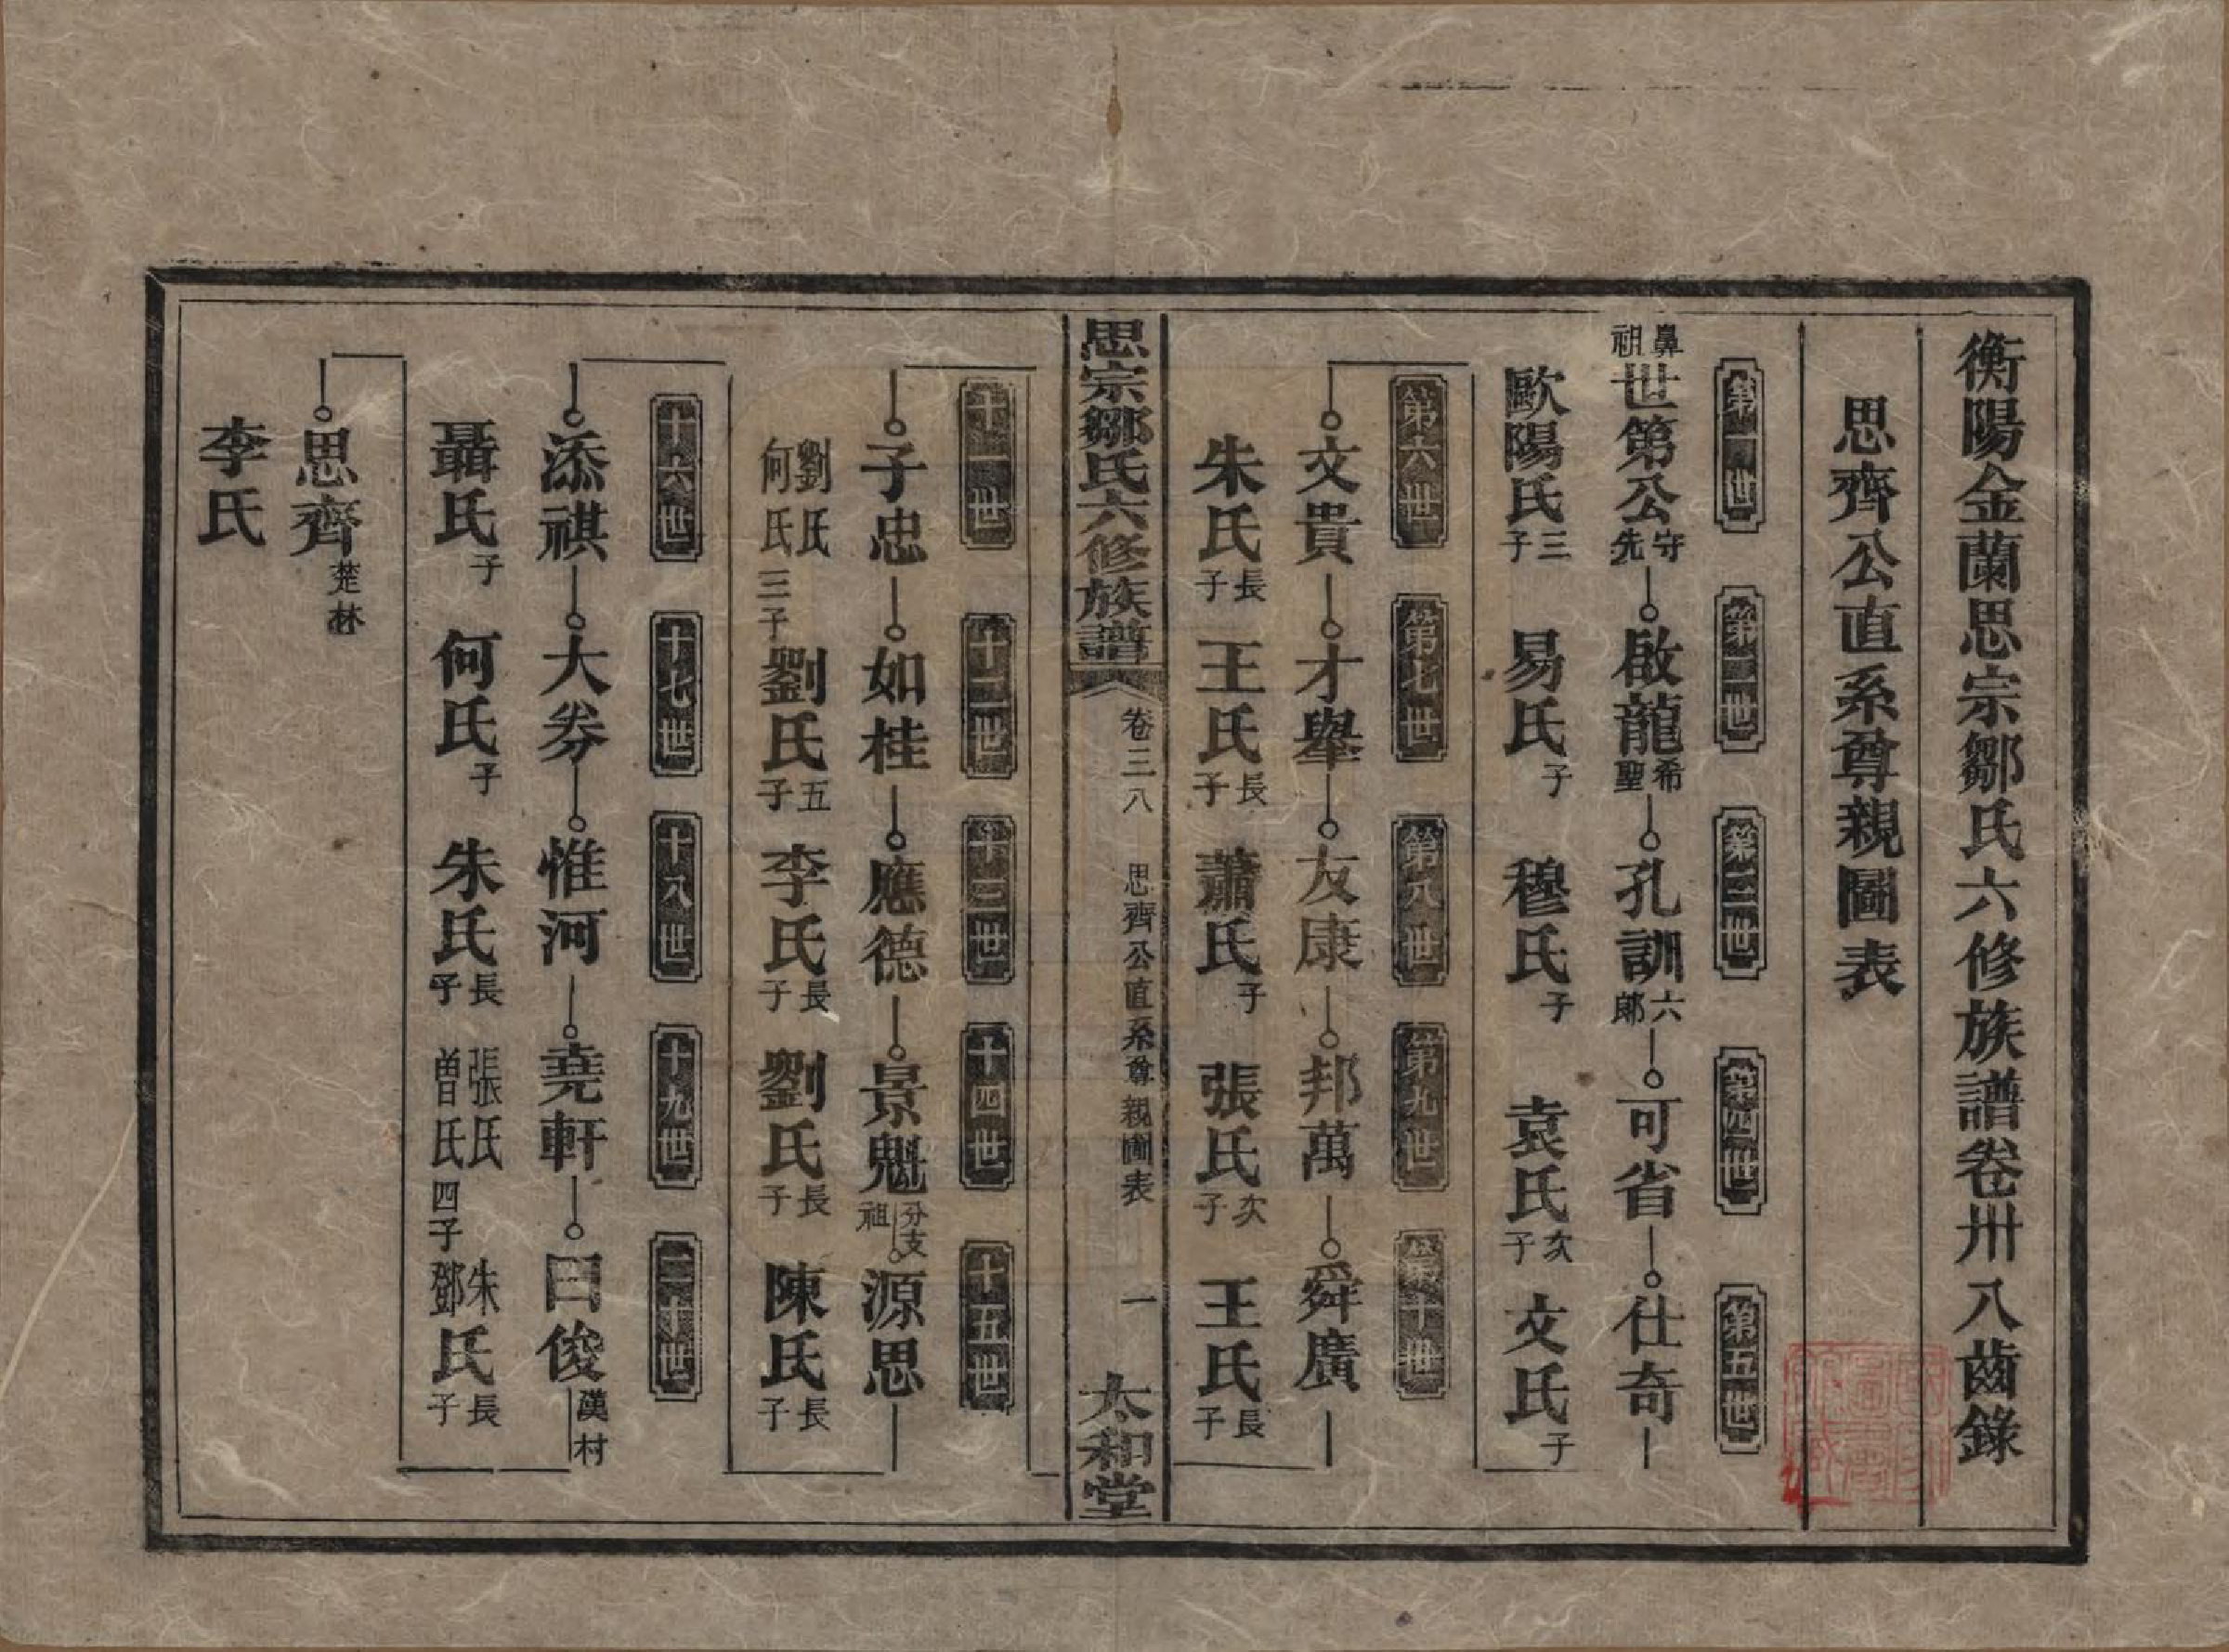 衡陽金蘭思宗鄒氏六修族譜卷卅八齒錄
思齊公直系尊親圖表
第一世 第二世 第三世 第四世 第五世
鼻祖世第公守先 啟龍希聖 孔訓六郎 可省 仕奇
歐陽氏三子 易氏子 穆氏子 袁氏次子 文氏子
第六世 第七世 第八世 第九世 第十世
文貴 才舉 友康 邦萬 舜廣
朱氏長子 王氏長子 蕭氏子 張氏次子 王氏長子
思宗鄒氏六修族譜 卷三八 思齊公直系尊親圖表 一 太和堂
十一世 十二世 十三世 十四世 十五世
子忠 如桂 應德 景魁分支祖 源思
劉氏何氏三子 劉氏五子 李氏長子 劉氏長子 陳氏長子
十六世 十七世 十八世 十九世 二十世
添祺 大券 惟河 堯軒 曰俊漢村
聶氏子 何氏子 朱氏長子 張氏曾氏四子 朱鄧氏長子
思齊楚林
李氏